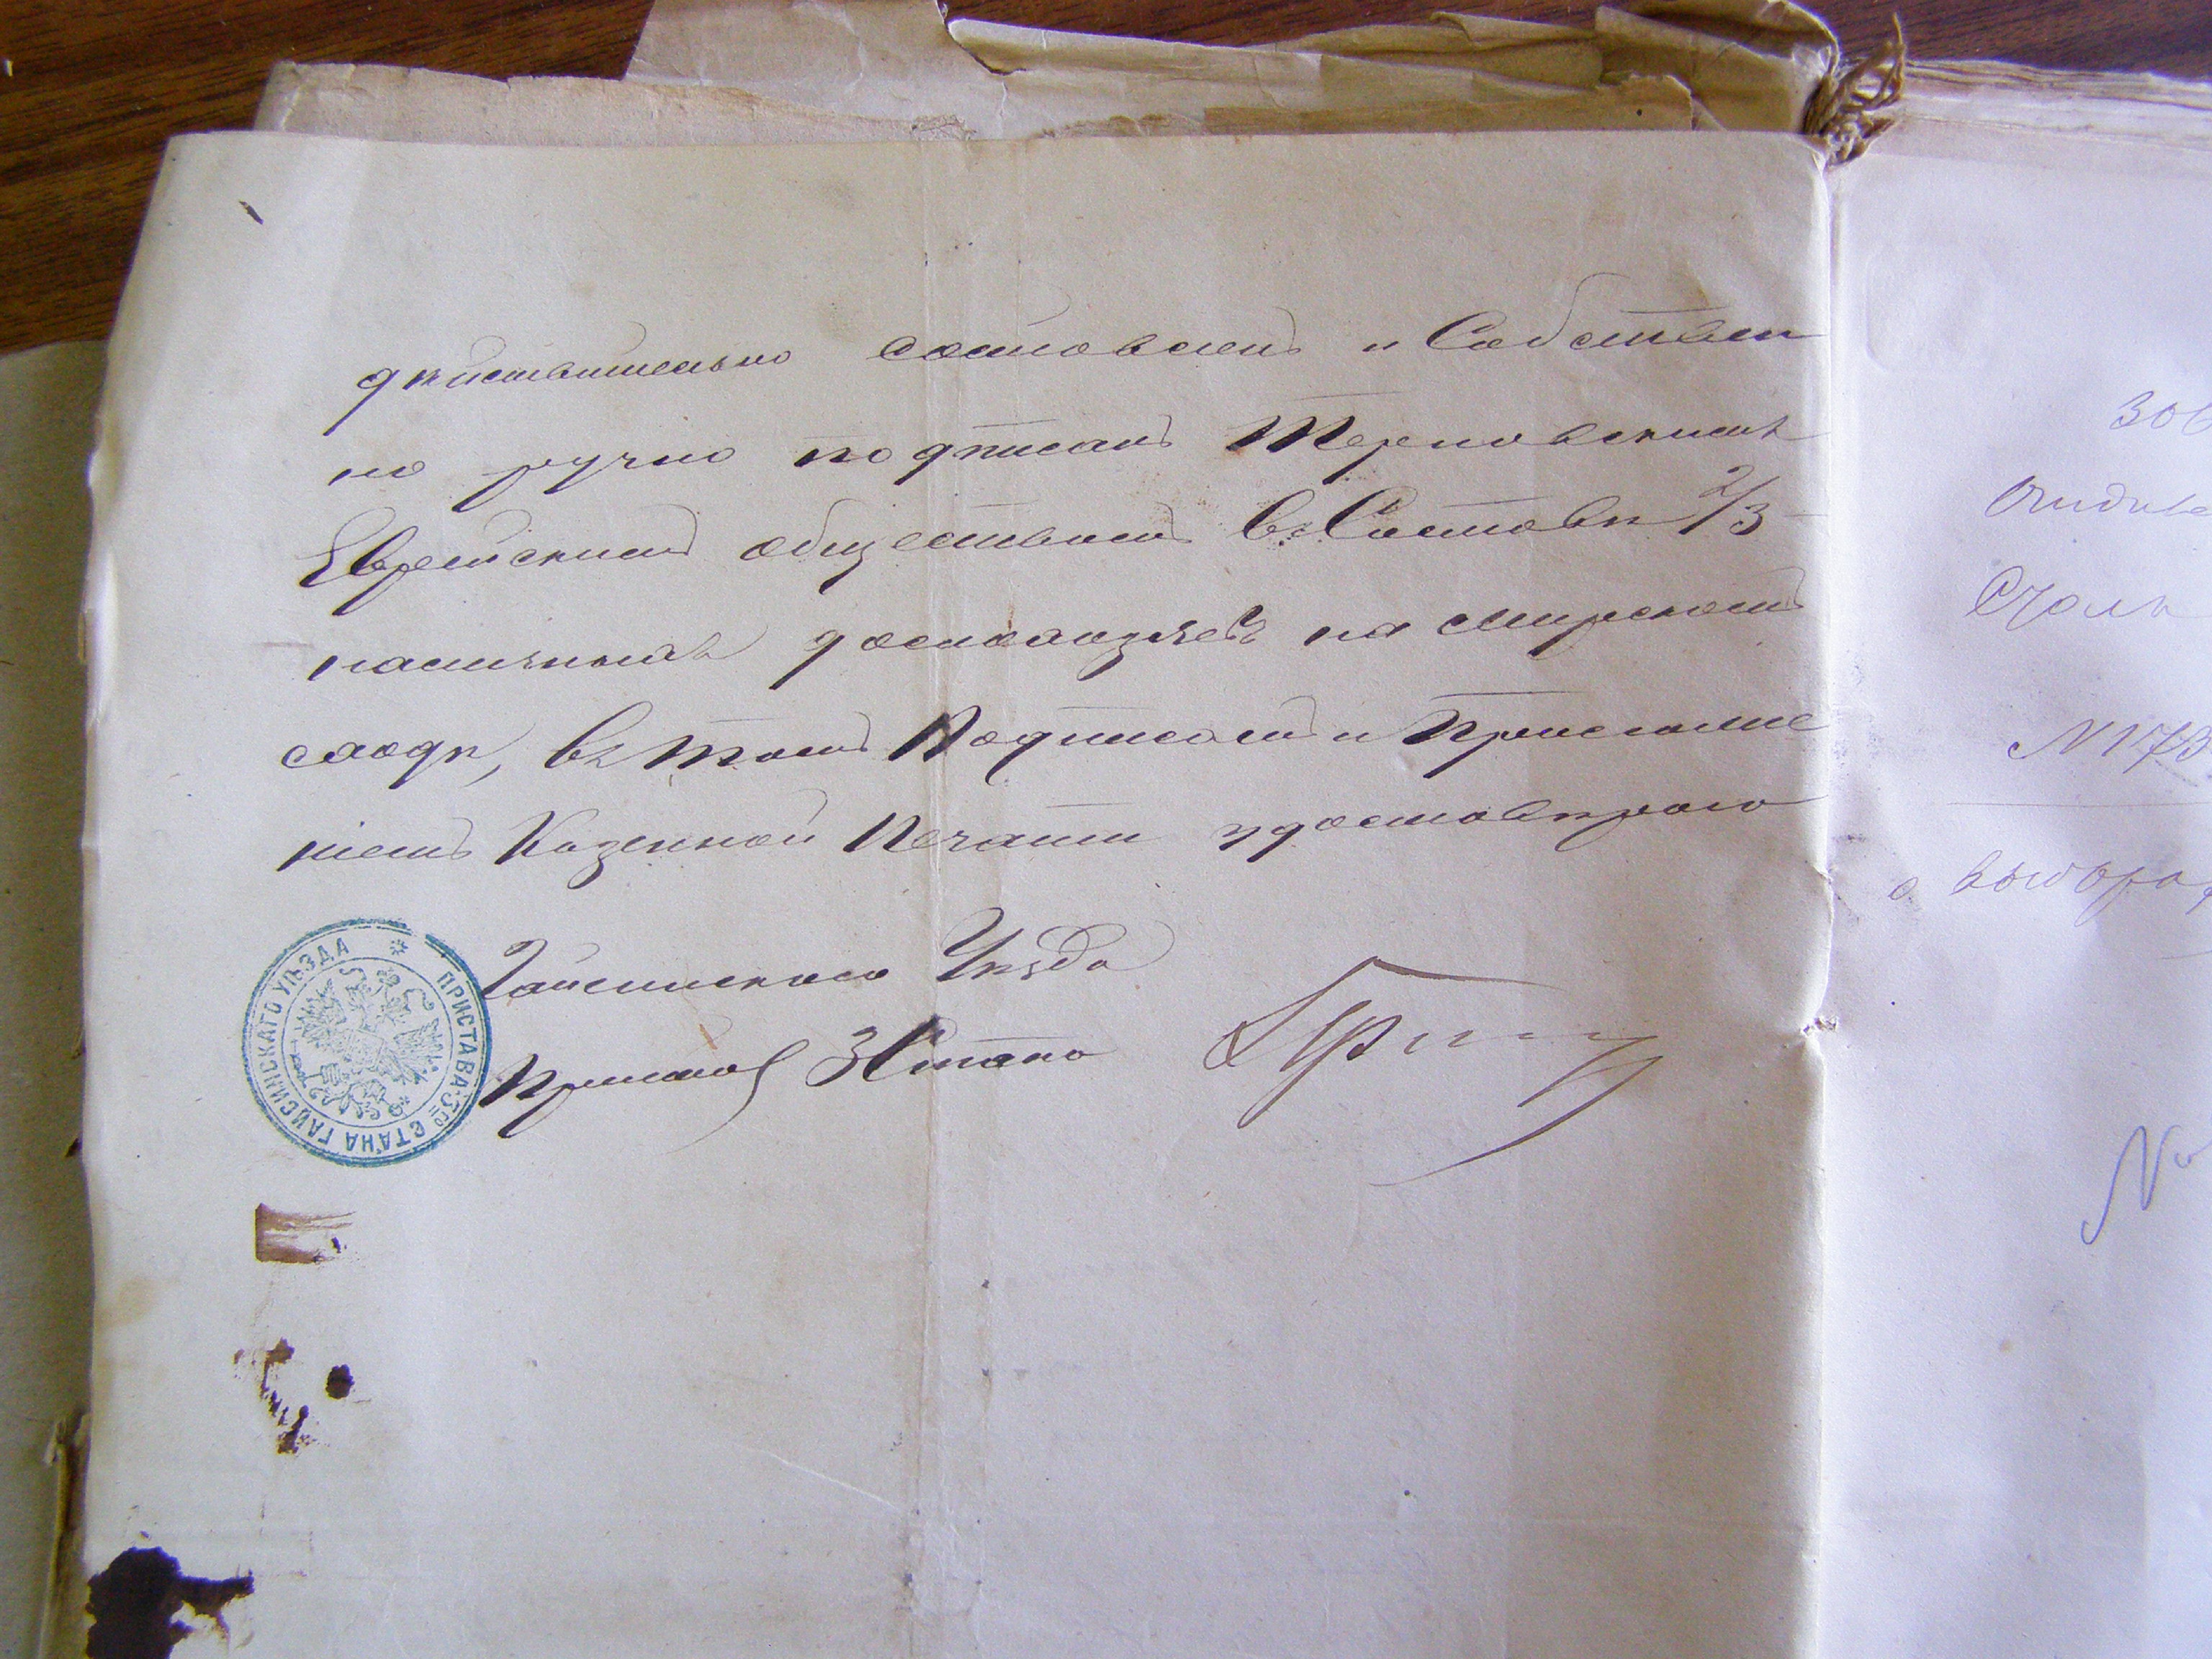 дѣйствительно составленъ и Собствен
но ручно подписанъ Терновскимъ
Еврейскимъ обществомъ въ Составѣ 2/3
наличныхъ домохозяевъ на мирскомъ
сходѣ, въ томъ Подписомъ и Приложе
ніемъ Казенной Печати удостовѣряю
Гайсинскаго Уѣзда
Приставъ 3 Стана
ПРИСТАВА 3го СТАНА ГАЙСИНСКАГО УѢЗДА
N 173